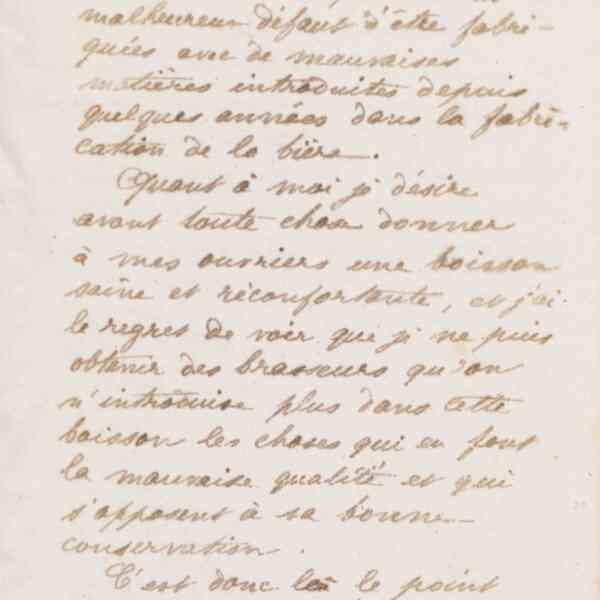 malheureux défaut d'être fabri-
quées avec de mauvaises
matières introduites depuis
quelques années dans la fabri-
cation de la bière.
Quant à moi je désire
avant toute chose donner
à mes ouvriers une boisson
saine et réconfortante, et j'ai
le regret de voir que je ne puis
obtenir des brasseurs qu'on
n'introduise plus dans cette
boisson les choses qui en font
la mauvaise qualité et qui
s'opposent à sa bonne
conservation.
C'est donc là le point